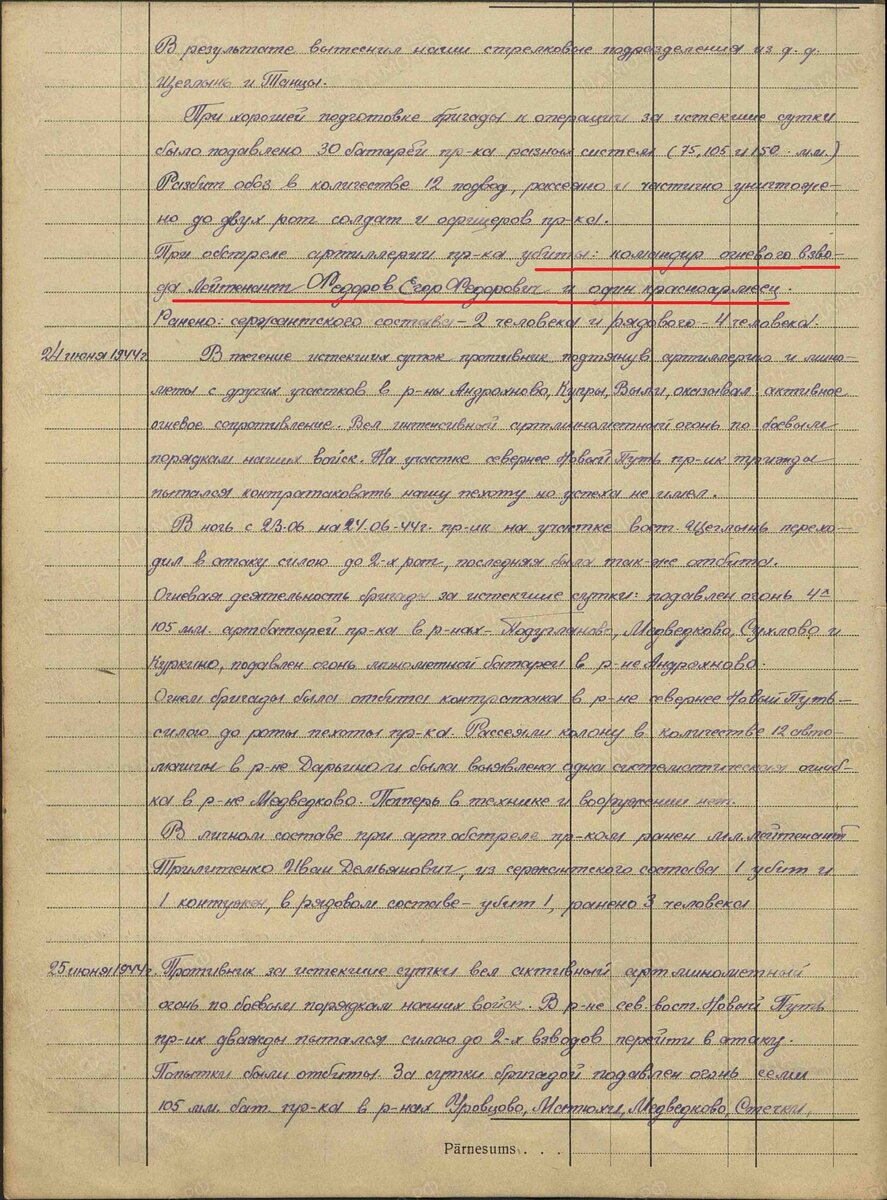 В результате вытеснил наши стрелковые подразделения из д.д.
Щеглынь и Танцы.
При хорошей подготовке бригады к операции за истекшие сутки
было подавлено 30 батарей пр-ка разных систем (75,105 и 150 мм.)
Разбит обоз в количестве 12 подвод, рассеяно и частично уничтоже-
но до двух рот солдат и офицеров пр-ка.
При обстреле артиллерии пр-ка убиты: командир огневого взво-
да Лейтенант Федоров Егор Федорович и один красноармеец.
Ранено: сержантского состава - 2 человека и рядового - 4 человека.
24 июня 1944г. В течение истекших суток противник подтянув артиллерию и мино-
меты с других участков в р-ны Андрохново, Купры, Выли, оказывал активное
огневое сопротивление. Вел интенсивный артминометный огонь по боевым
порядкам наших войск. На участке севернее Новый Путь пр-ик трижды
пытался контратаковать нашу пехоту но успеха не имел.
В ночь с 23.06 на 24.06-44г. пр-ик на участке вост. Щеглынь перехо-
дил в атаку силою до 2-х рот, последняя была так-же отбита.
Огневая деятельность бригады за истекшие сутки: подавлен огонь 4х
105 мм. артбатарей пр-ка в р-нах - Медведково, Сухлово и
Куркино, подавлен огонь минометной батареи в р-не Андрохново.
Огнем бригады была отбита контратака в р-не севернее Новый Путь -
силою до роты пехоты пр-ка. Рассеяли колону в количестве 12 авто-
машин в р-не Дарьино и была выявлена одна систематическая ошиб-
ка в р-не Медведково. Потерь в технике и вооружении нет.
В личном составе при артобстреле пр-ком ранен мл. лейтенант
Трилитенко Иван Демьянович, из сержантского состава 1 убит и
1 контужен, в рядовом составе - убит 1, ранено 3 человека
25 июня 1944г. Противник за истекшие сутки вел активный артминометный
огонь по боевым порядкам наших войск. В р-не сев. вост. Новый Путь
пр-ик дважды пытался силою до 2-х взводов перейти в атаку.
Попытки были отбиты. За сутки бригадой подавлен огонь семи
105 мм. бат. пр-ка в р-нах Уровцово, Матюхи, Медведково, Стечки,
Pārnesums . . .